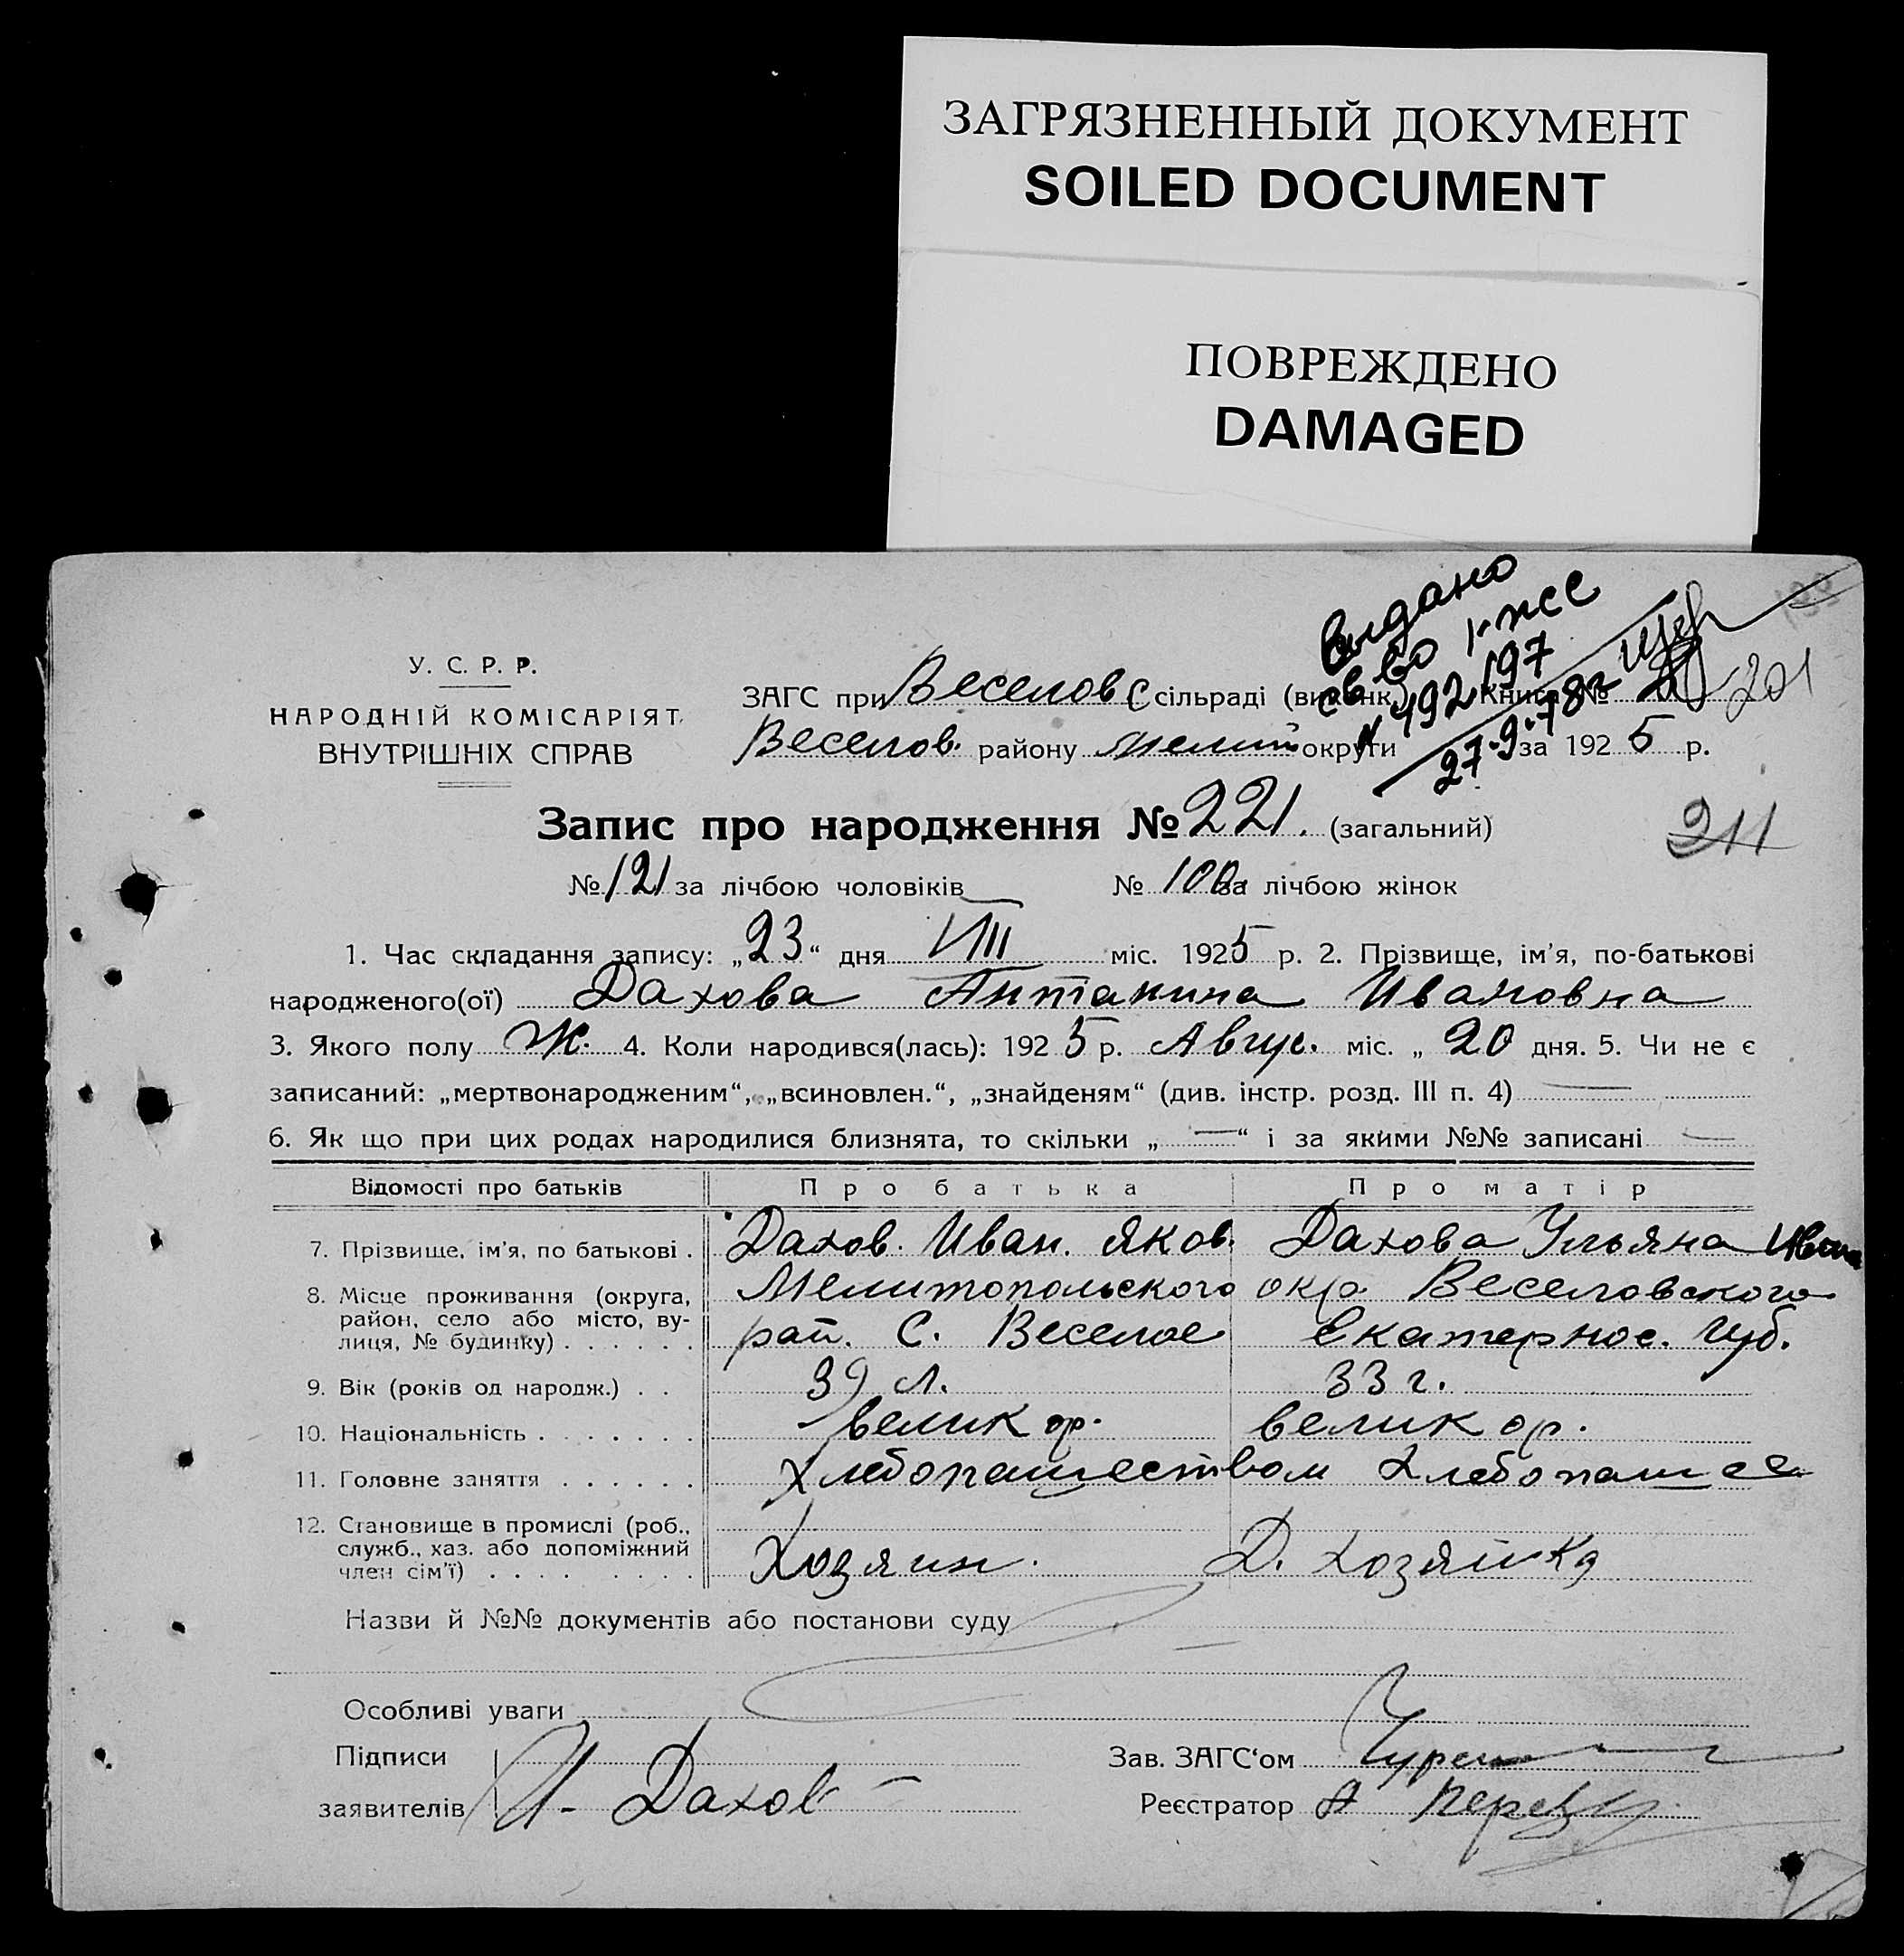 ЗАГРЯЗНЕННЫЙ ДОКУМЕНТ
SOILED DOCUMENT
ПОВРЕЖДЕНО
DAMAGED
Выдано
св во
№ 492197
27.9.78г
У. С. Р. Р.
НАРОДНІЙ КОМІСАРІЯТ
ВНУТРІШНІХ СПРАВ
ЗАГС при Веселовс сільраді (виконк.) Книга № 201
Веселов. району Мелит округи за 1925 р.
Запис про народження № 221. (загальний)
211
№ 121 за лічбою чоловіків № 100 за лічбою жінок
1. Час складання запису: „23“ дня VIII міс. 1925 р. 2. Прізвище, ім'я, по-батькові
народженого(ої) Дахова Антанина Ивановна
3. Якого полу Ж. 4. Коли народився(лась): 1925 р. Авгус. міс. „ 20 дня. 5. Чи не є
записаний: „мертвонародженим“, „всиновлен.“, „знайденям“ (див. інстр. розд. III п. 4) —
6. Як що при цих родах народилися близнята, то скільки „ — “ і за якими №№ записані —
Відомості про батьків Про батька Про матір
7. Прізвище, ім'я, по батькові . Дахов. Иван. Яков. Дахова Ульяна Иван
8. Місце проживання (округа, Мелитопольского окр. Веселовского
район, село або місто, ву- рай. С. Веселое Екатеринос. Губ.
лиця, № будинку) . . . . . .
9. Вік (років од народж.) . . 39 л. 33 г.
10. Національність . . . . . . . великор. великор.
11. Головне заняття . . . . . . Хлебопашеством Хлебопаш
12. Становище в промислі (роб.,
служб., хаз. або допоміжний Хозяин. Д. Хозяйка
член сім'ї) . . . . . . . .
Назви й №№ документів або постанови суду
Особливі уваги
Підписи Зав. ЗАГС‘ом
заявителів И. Дахов Реєстратор